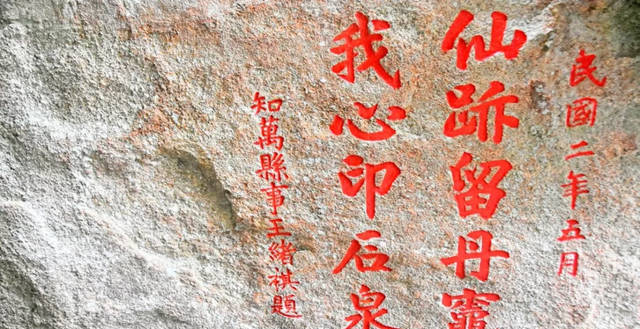 民國二年五月
仙跡留丹竈
我心印石泉
知萬縣事王緒祺題